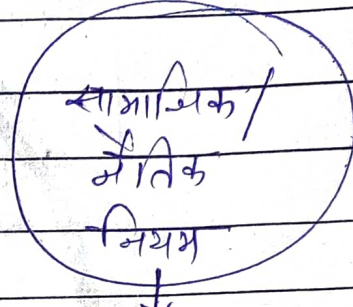 सामाजिक/
नैतिक
नियम